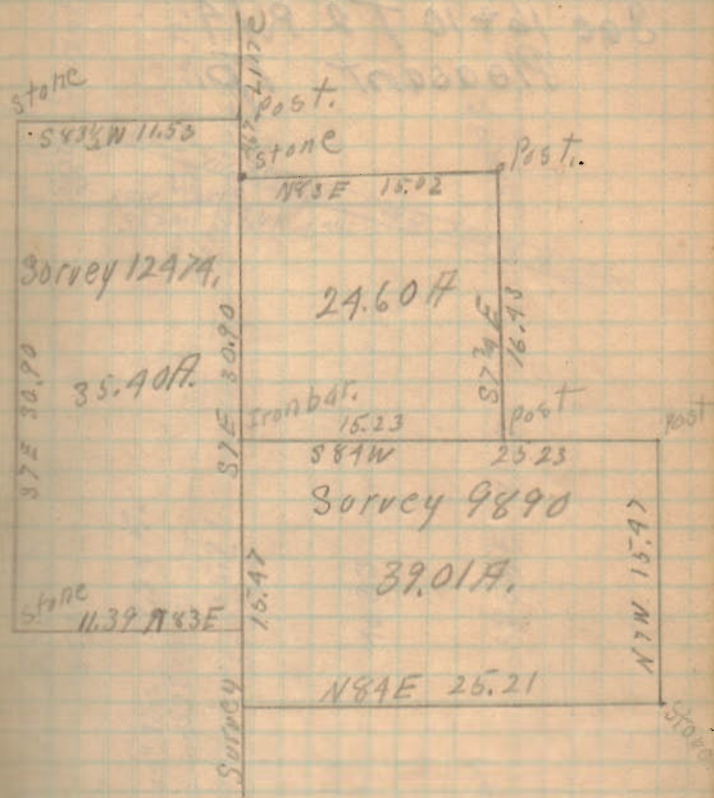 Line
Post.
Stone
S 83½ W 11.53
Stone
Post.
N83E 15.02
Survey 12474,
24.60 A
S 7¾ E 16.43
S7E 30.90
35.40A.
S7E 30.90
Iron bar.
15.23
Post
Post
S84W 25.23
Survey 9890
39.01 A.
15.47
N7W 15.47
Stone
11.39 N83E
N84E 25.21
Survey
Stone